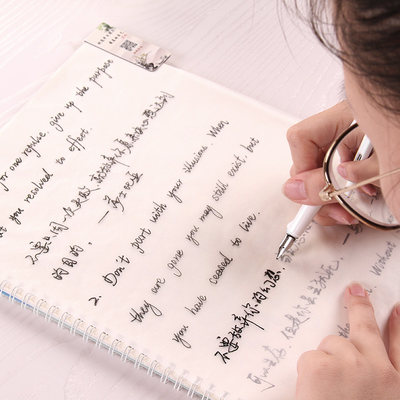 for one refulse, give up the purpose
at you resolved to effect.
不要只因一次失败，就放弃你原来决心想达到
的目的。 —莎士比亚
2. Don't part with your illusions. When
they are gone you may still exist, but
you have ceased to live.
不要放弃你的幻想。
可以生存，但是虽生犹死。
the
Without